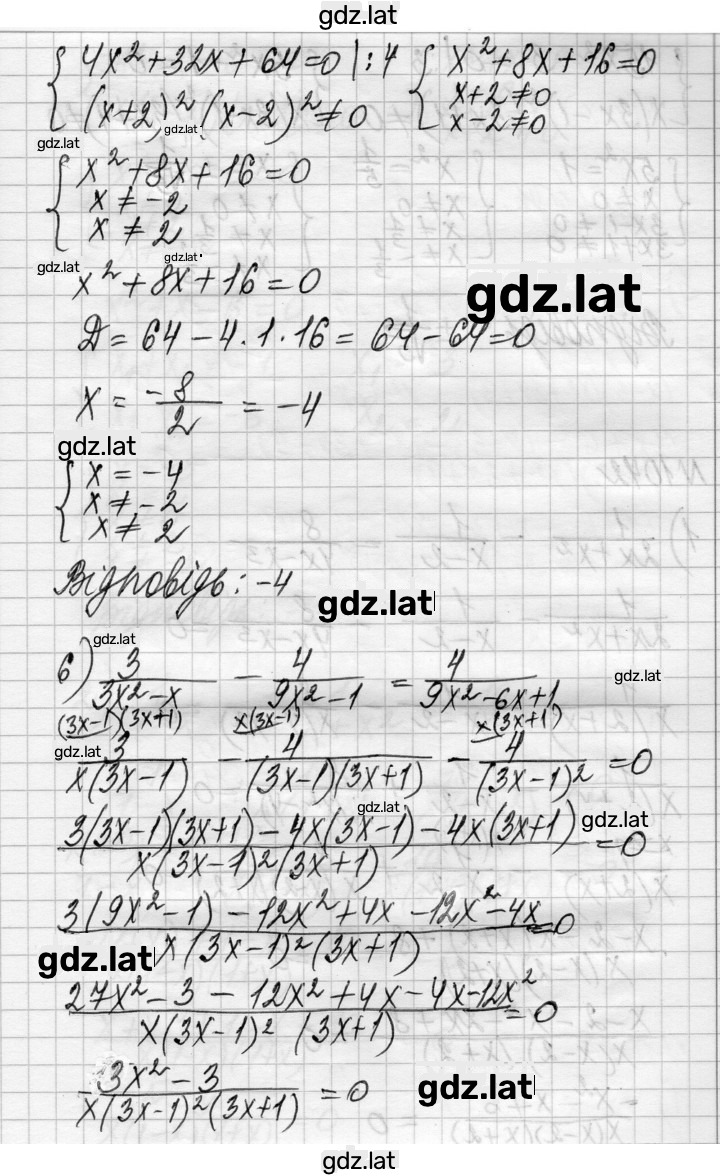 gdz.lat
{ 4x² + 32x + 64 = 0 |:4 { x² + 8x + 16 = 0
(x+2)² (x-2)² ≠ 0 x+2 ≠ 0
gdz.lat x-2 ≠ 0
gdz.lat
{ x² + 8x + 16 = 0
x ≠ -2
x ≠ 2
gdz.lat
gdz.lat
x² + 8x + 16 = 0
gdz.lat
D = 64 - 4·1·16 = 64 - 64 = 0
x = -8/2 = -4
gdz.lat
{ x = -4
x ≠ -2
x ≠ 2
Відповідь: -4
gdz.lat
gdz.lat
6) 3/(3x²-x) - 4/(9x²-1) = 4/(9x²-6x+1)
gdz.lat
(3x-1)(3x+1) x(3x-1) x(3x+1)
gdz.lat
3/(x(3x-1)) - 4/((3x-1)(3x+1)) - 4/((3x-1)²) = 0
gdz.lat
gdz.lat
(3(3x-1)(3x+1) - 4x(3x-1) - 4x(3x+1))/(x(3x-1)²(3x+1)) = 0
(3(9x²-1) - 12x² + 4x - 12x² - 4x)/(x(3x-1)²(3x+1)) = 0
gdz.lat
(27x² - 3 - 12x² + 4x - 4x - 12x²)/(x(3x-1)² (3x+1)) = 0
(3x² - 3)/(x(3x-1)²(3x+1)) = 0
gdz.lat
gdz.lat